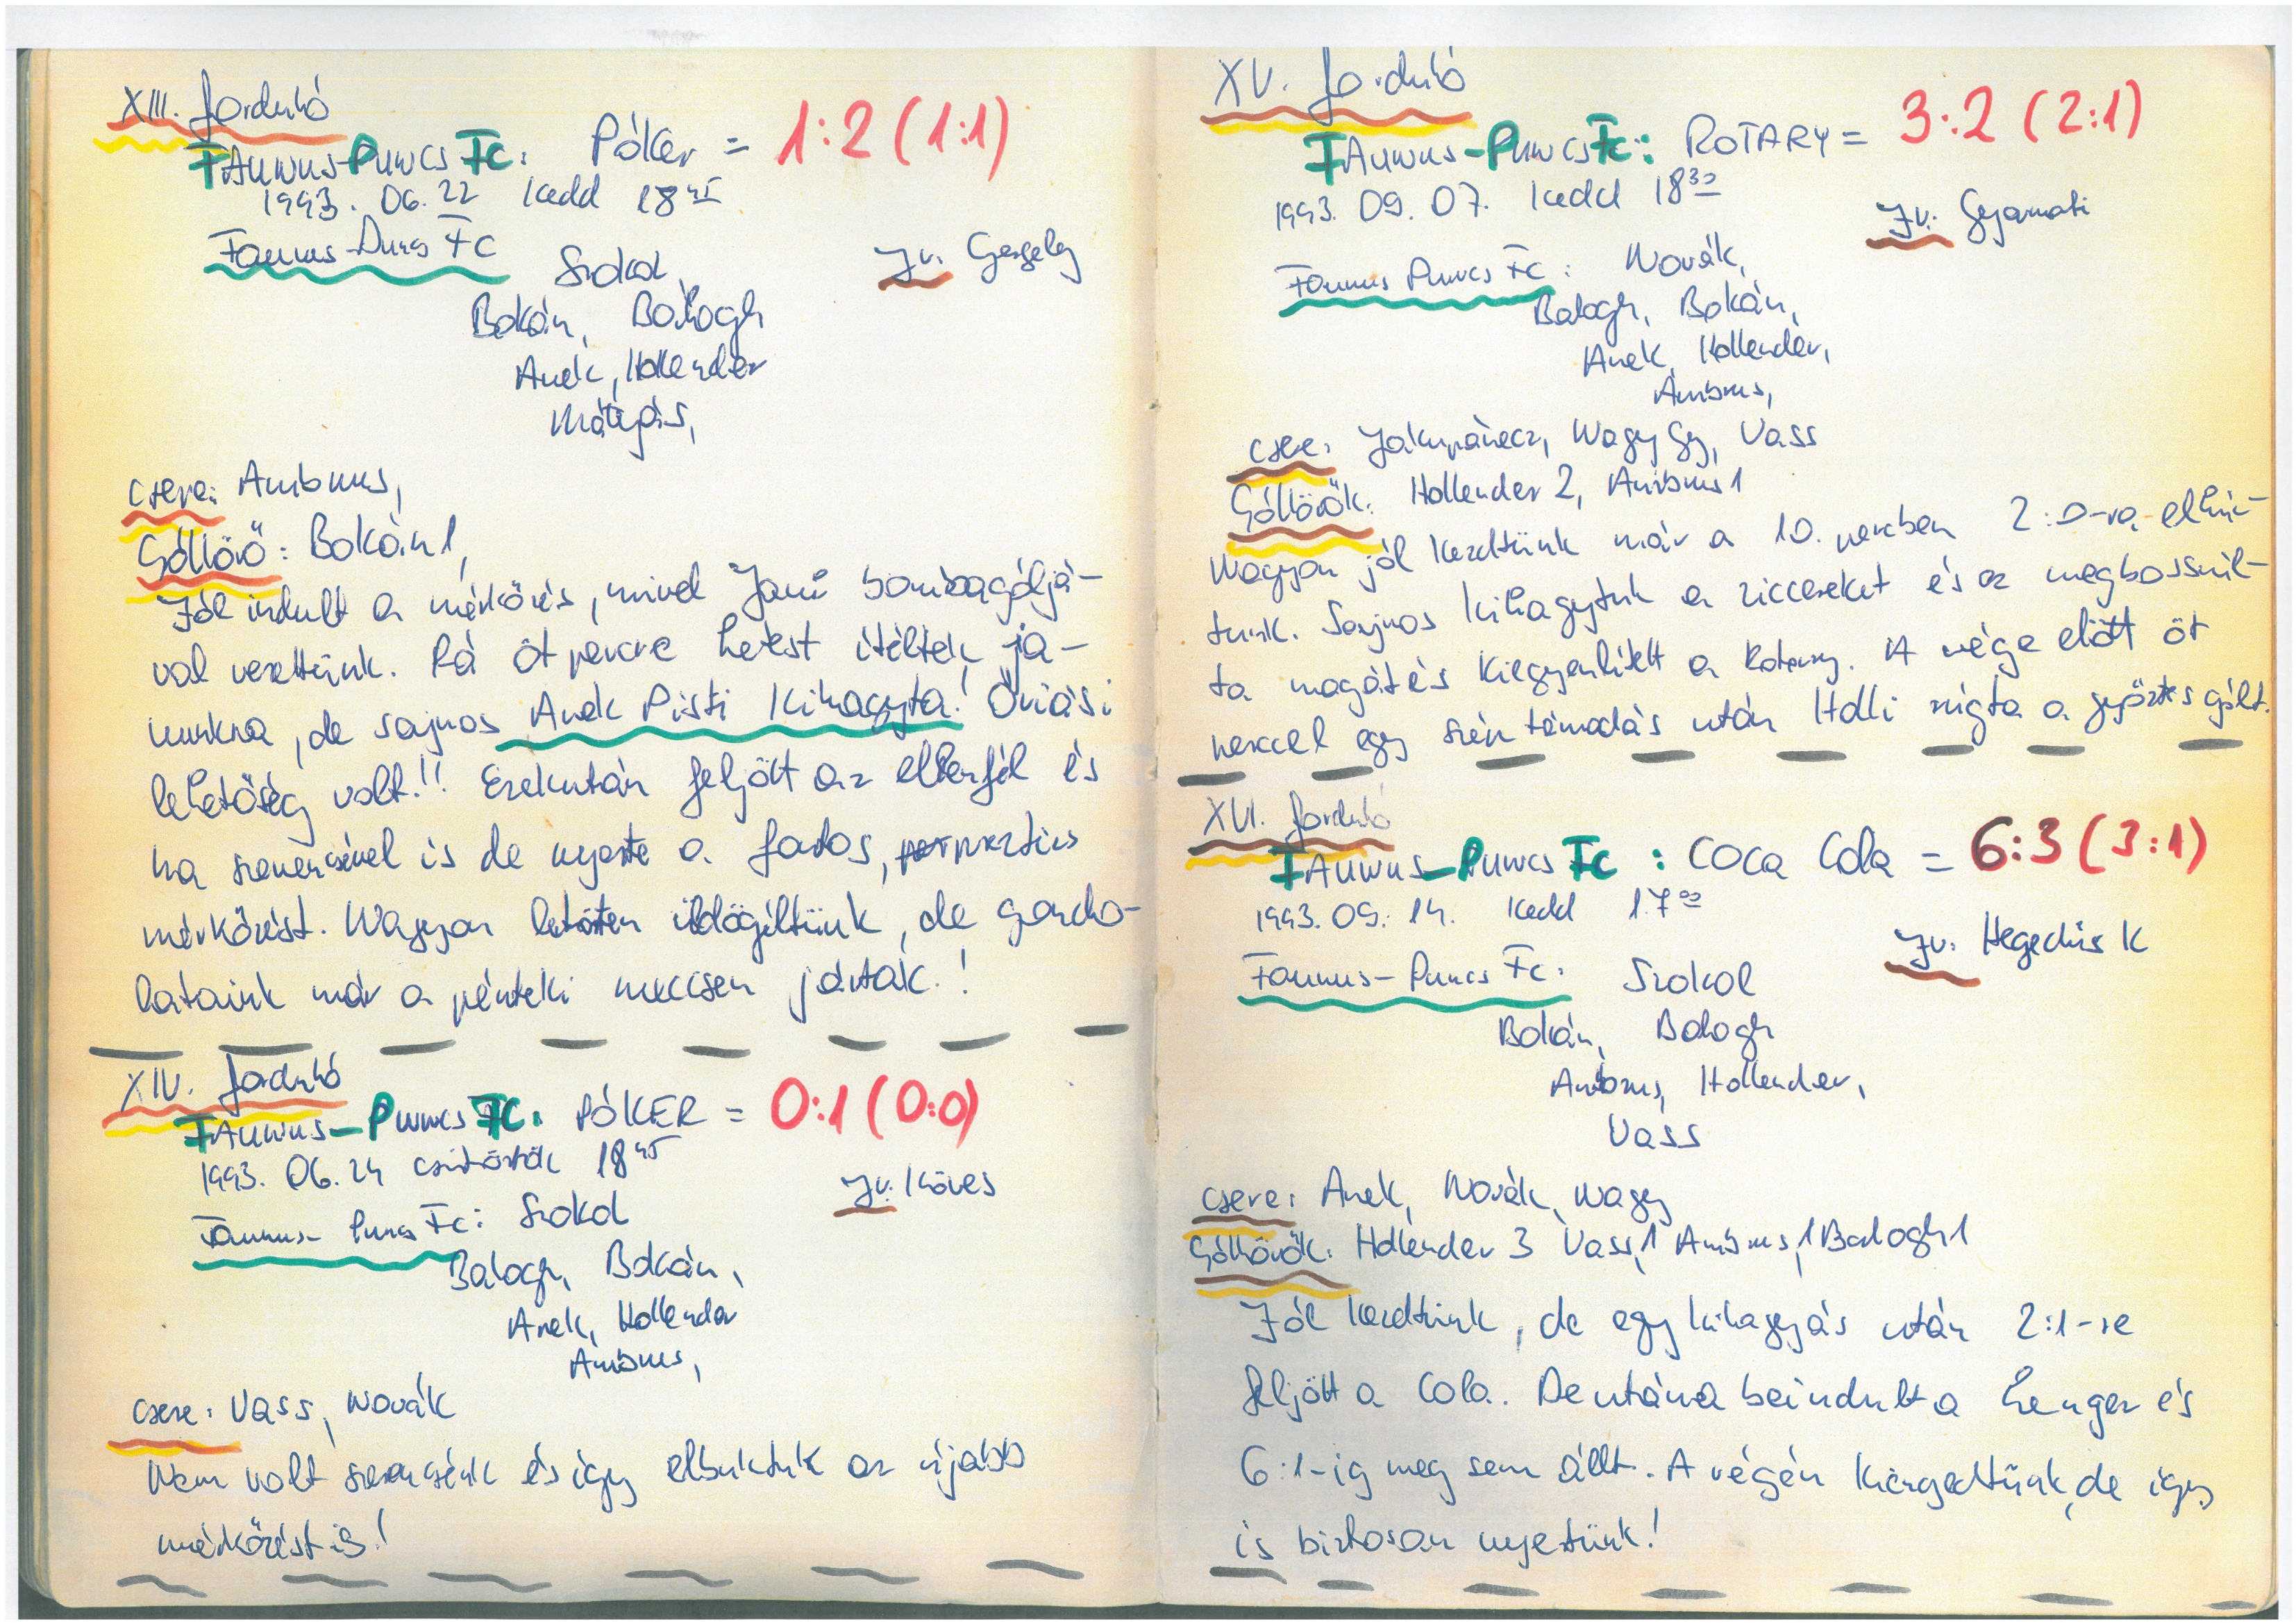 XIII. forduló
FAUNUS-PUNCS FC: Póker = 1:2 (1:1)
1993. 06. 22 kedd 18 45
Faunus-Puncs FC
Szokol
Jv. Gergely
Bokán, Balogh
Anek, Hollender
Mátyás,
csere: Ambrus,
Góllövő: Bokán 1,
Jól indult a mérkőzés, mivel Jani bombagóljá-
val vezettünk. Rá öt percre hetest ítéltek ja-
vunkra, de sajnos Anek Pisti kihagyta! Óriási
lehetőség volt!! Ezekután feljött az ellenfél és
ha szerencsével is de nyerte a fontos, presztizs
mérkőzést. Nagyon letörten üldögéltünk, de gondo-
lataink már a pénteki meccsen jártak.!
XIV. forduló
FAUNUS-PUNCS FC: PÓKER = 0:1 (0:0)
1993. 06. 24 csütörtök 18 45
Jv. Köves
Faunus-Puncs FC: Szokol
Balogh, Bokán,
Anek, Hollender
Ambrus,
csere: Vass, Novák
Nem volt szerencsénk és így elbuktuk az újabb
mérkőzést is!
XV. forduló
FAUNUS-PUNCS FC: ROTARY = 3:2 (2:1)
1993. 09. 07. kedd 18 30
Jv. Gyarmati
Faunus Puncs FC: Novák,
Balogh, Bokán,
Anek, Hollender,
Ambrus,
csere: Nagy Gy, Vass
Góllövők: Hollender 2, Ambrus 1
Nagyon jól kezdtünk már a 10. percben 2:0-ra elhúz-
tunk. Sajnos kihagytuk a ziccereket és ez megbosszul-
ta magát és kiegyenlített a Rotary. A vége előtt öt
perccel egy szép támadás után Holli rúgta a győztes gólt.
XVI. forduló
FAUNUS-PUNCS FC: COCA Cola = 6:3 (3:1)
1993. 09. 14. kedd 17 00
Jv. Hegedűs K
Faunus-Puncs FC: Szokol
Bokán, Balogh
Ambrus, Hollender,
Vass
csere: Anek, Novák, Nagy
Góllövők: Hollender 3 Vass 1, Ambrus 1, Balogh 1
Jól kezdtünk, de egy kihagyás után 2:1-re
feljött a Cola. De utána beindult a henger és
6:1-ig meg sem állt. A végén kiengedtünk, de így
is biztosan nyertünk!